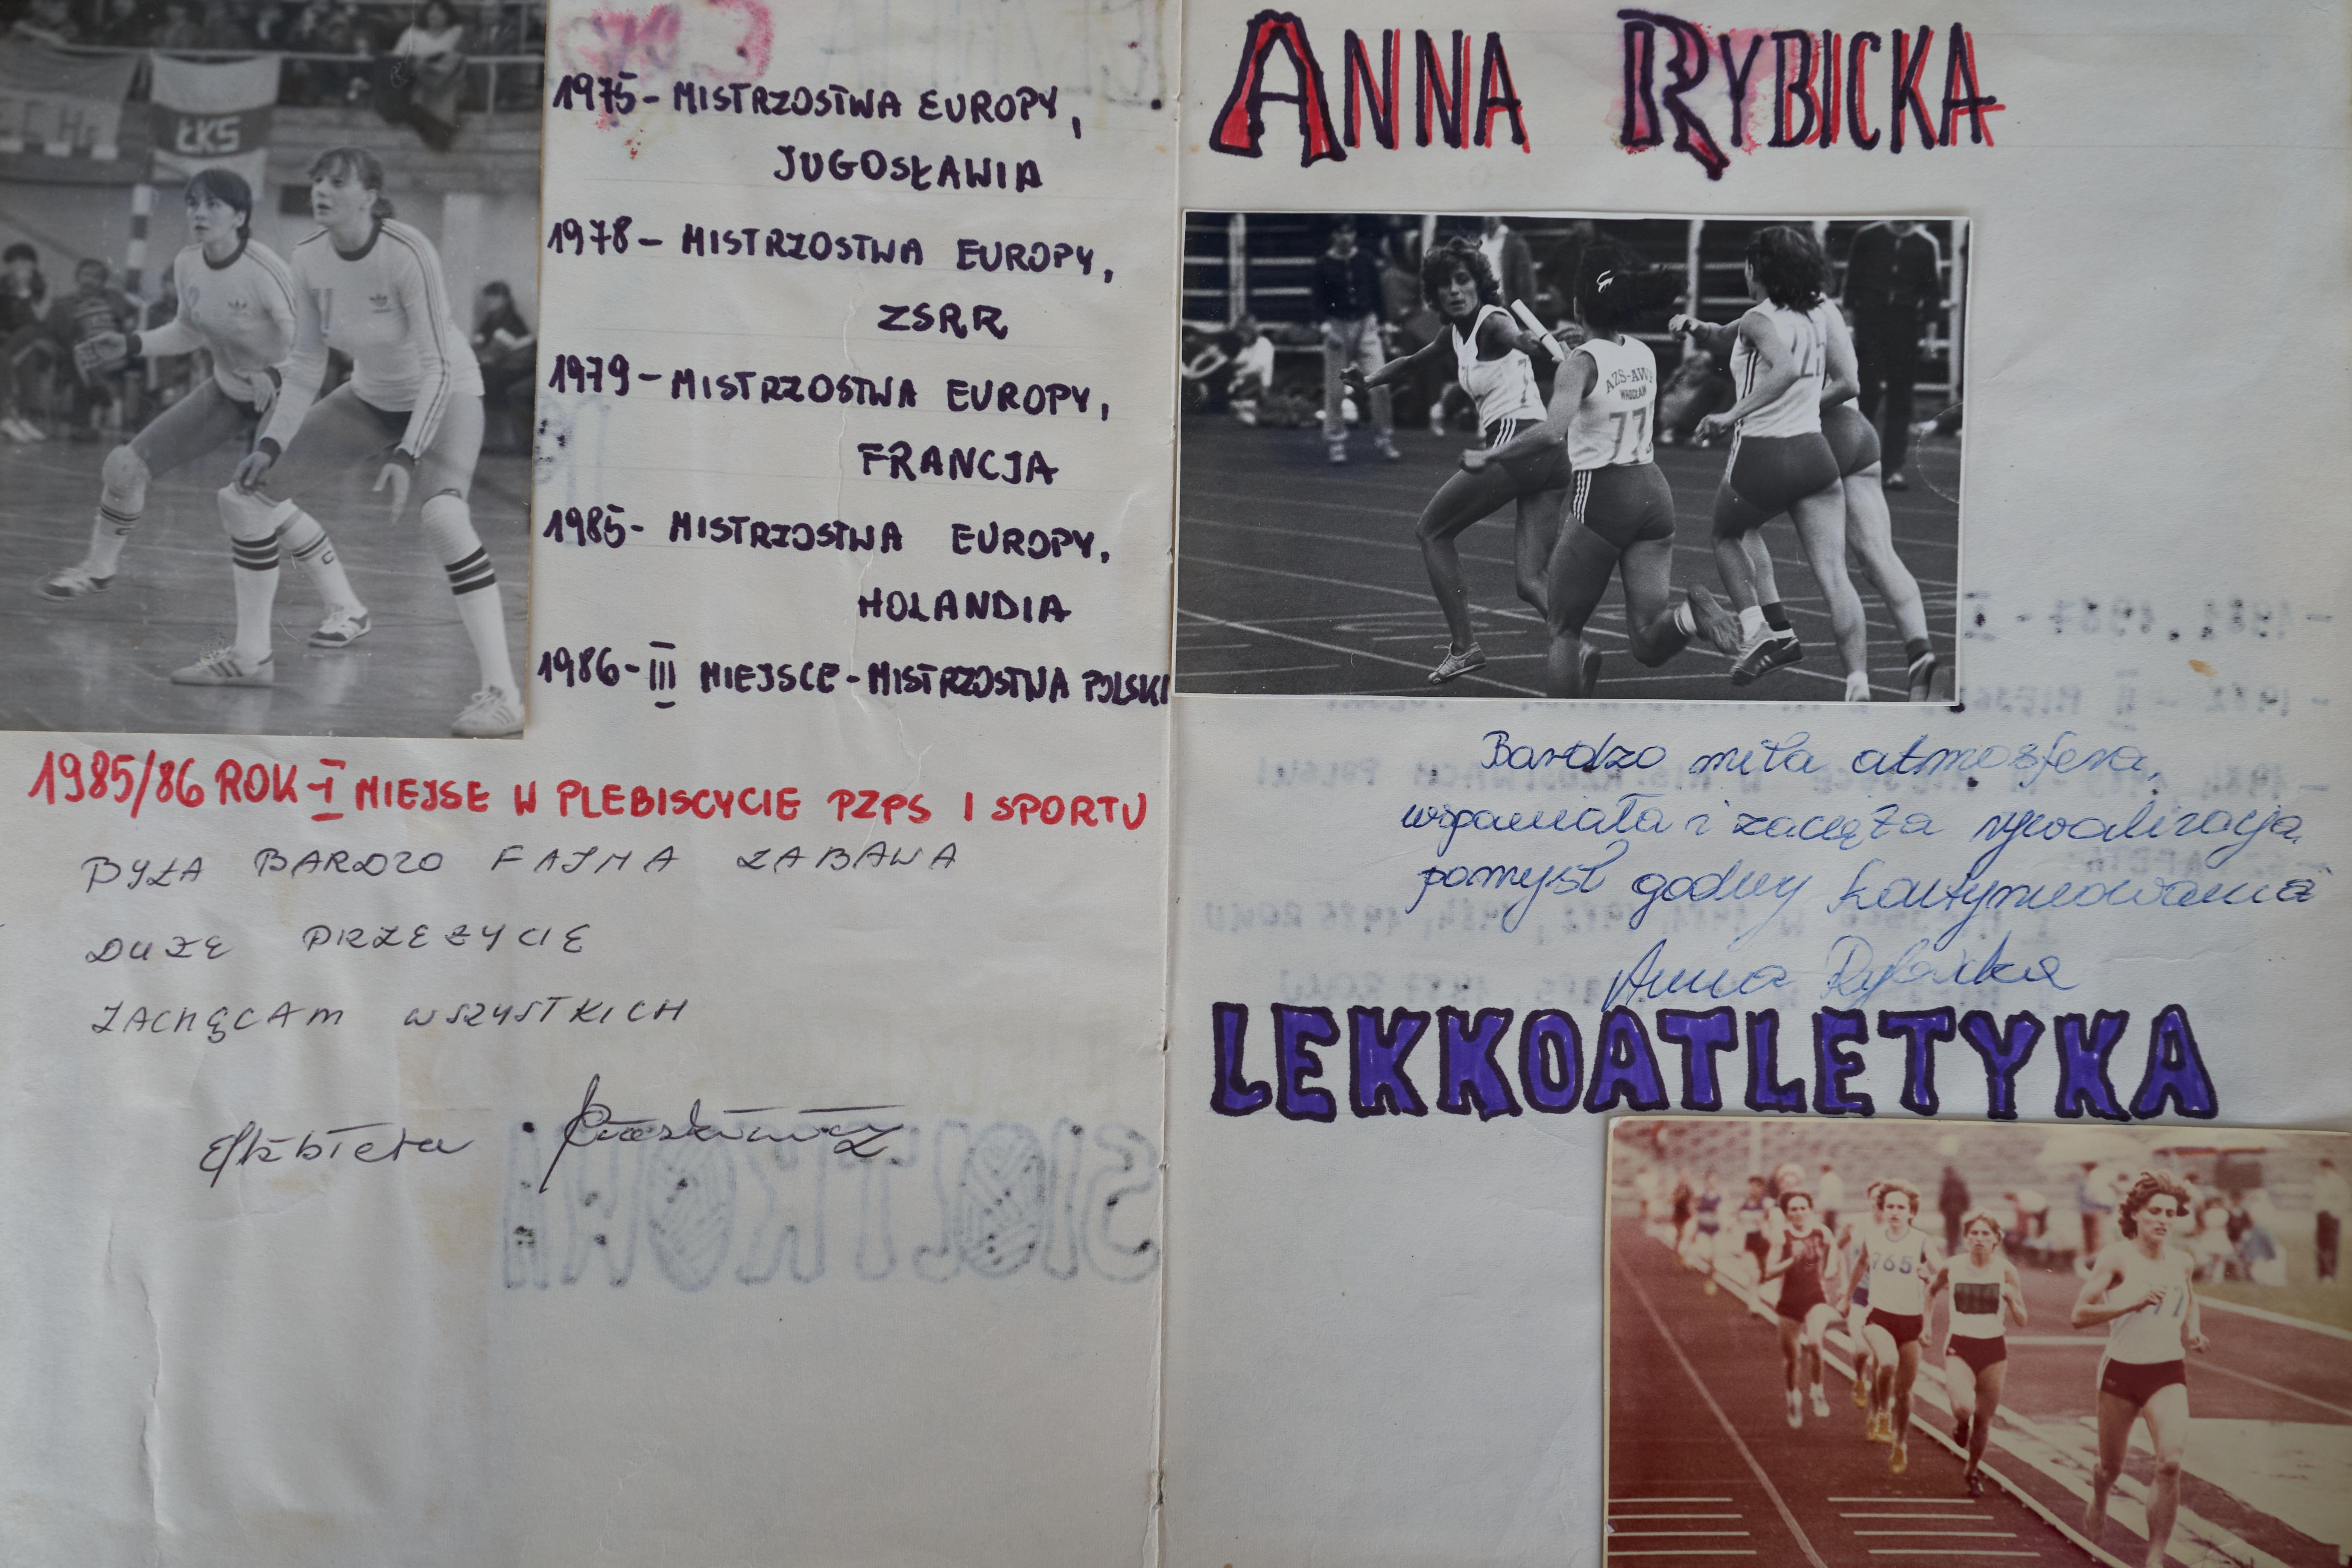 1975 - MISTRZOSTWA EUROPY,
JUGOSŁAWIA
1978 - MISTRZOSTWA EUROPY,
ZSRR
1979 - MISTRZOSTWA EUROPY,
FRANCJA
1985 - MISTRZOSTWA EUROPY,
HOLANDIA
1986 - III MIEJSCE - MISTRZOSTWA POLSKI
1985/86 ROK - I MIEJSE W PLEBISCYCIE PZPS I SPORTU
BYŁA BARDZO FAJNA ZABAWA
DUŻE PRZEŻYCIE
ZACHĘCAM WSZYSTKICH
Elżbieta
ŁKS
ANNA RYBICKA
AZS-AWF
WROCŁAW
77
Bardzo miła atmosfera,
wspaniała i zacięta rywalizacja,
pomysł godny kontynuowania
Anna Rybicka
LEKKOATLETYKA
965
77
SIATKÓWKA